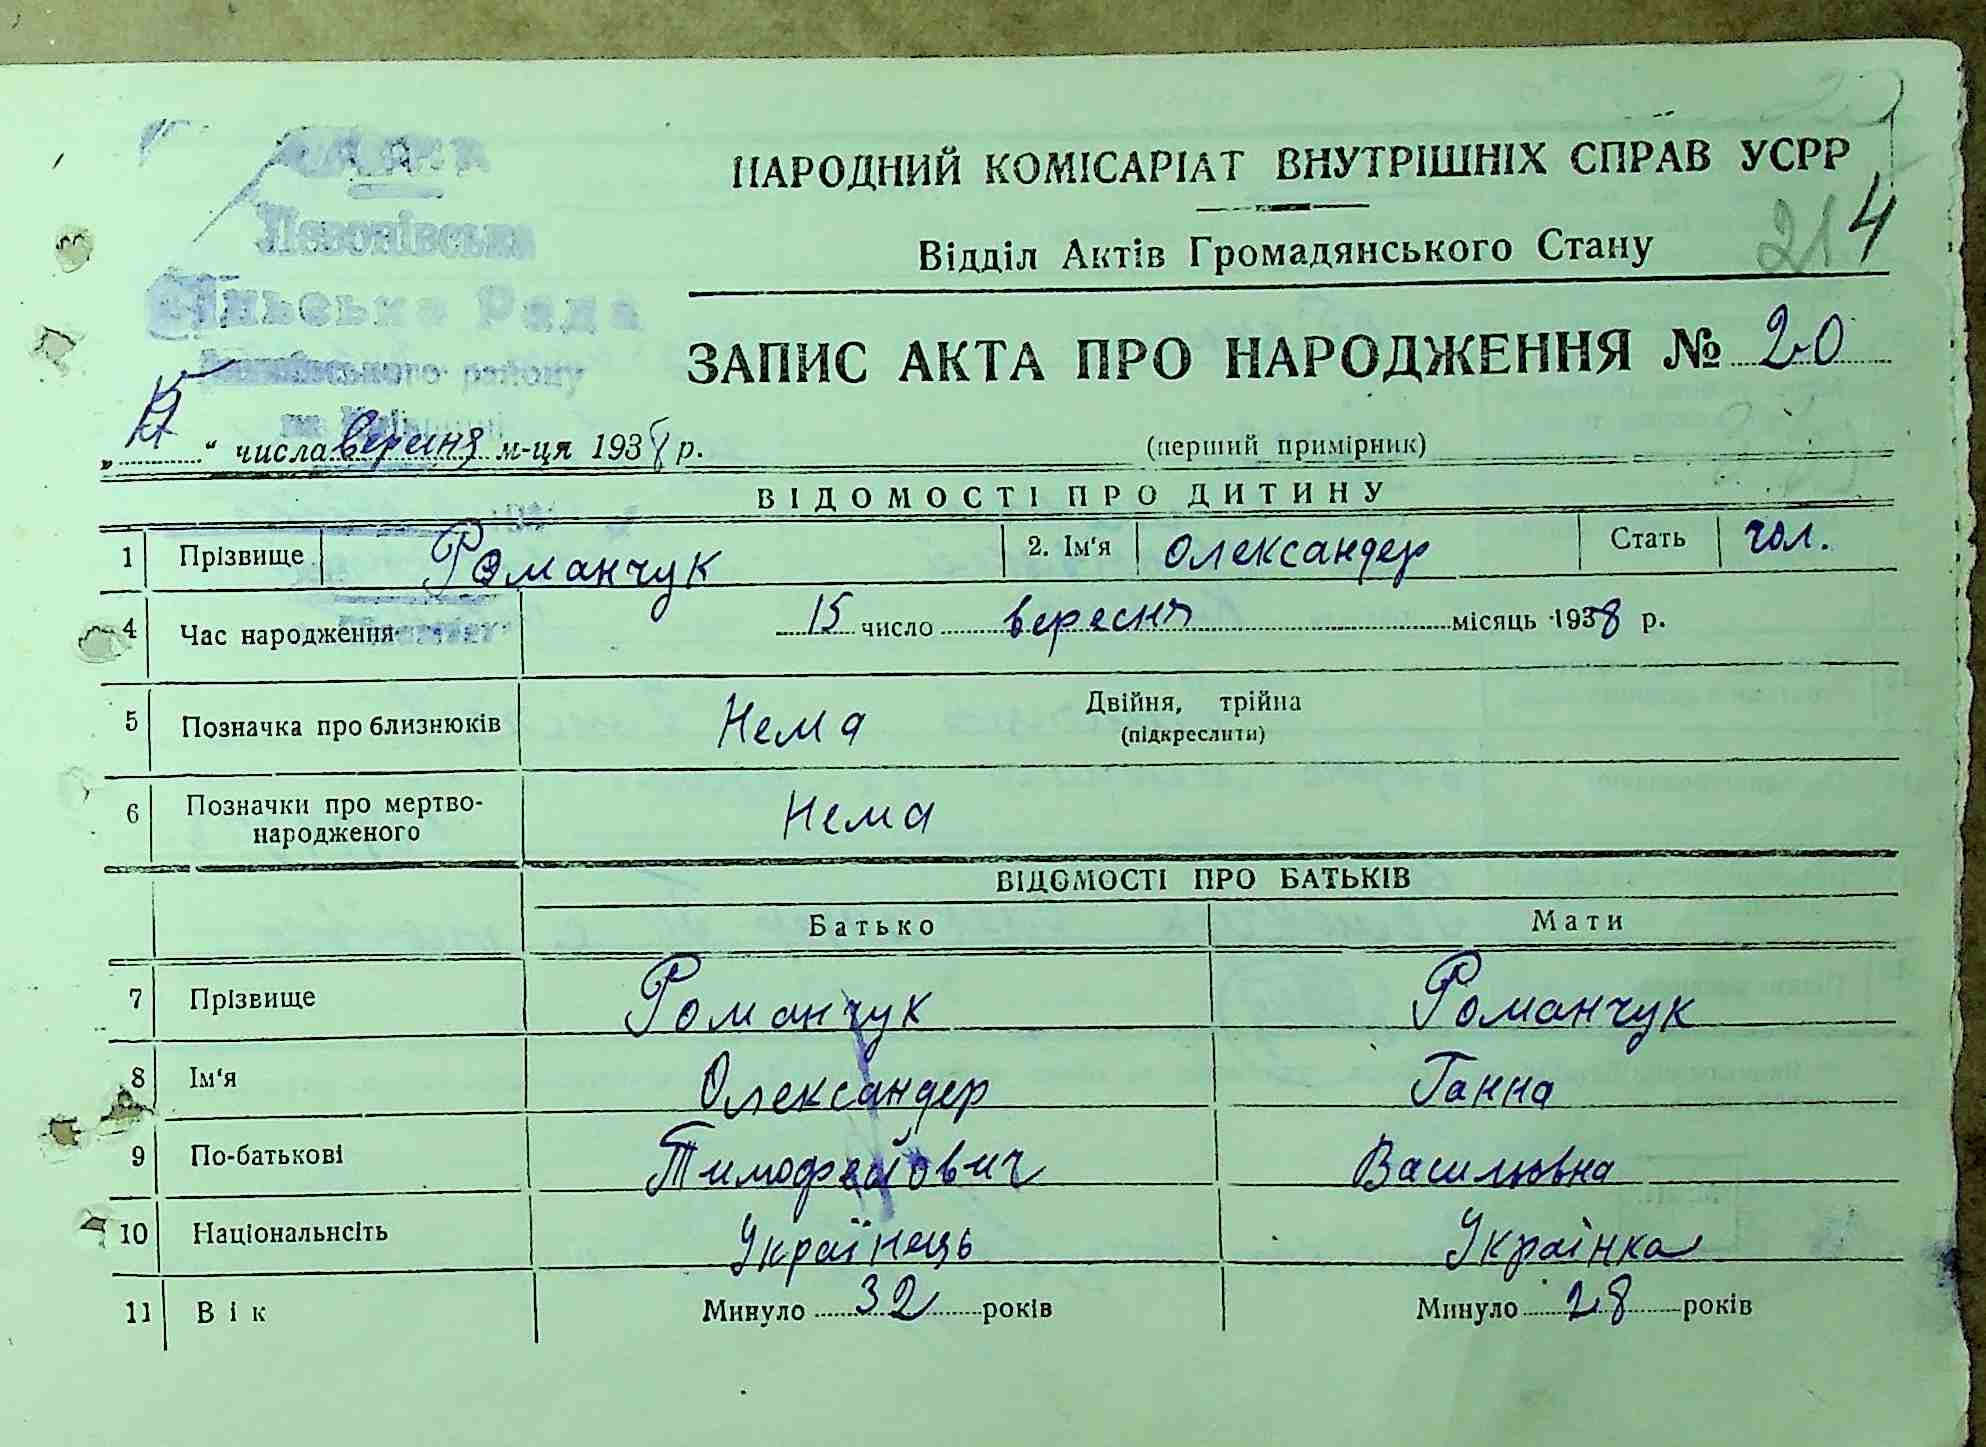 НАРОДНИЙ КОМІСАРІАТ ВНУТРІШНІХ СПРАВ УСРР
Відділ Актів Громадянського Стану
214
Сільська Рада
району
ЗАПИС АКТА ПРО НАРОДЖЕННЯ № 20
(перший примірник)
„ “ числа вересня м-ця 1938 р.
ВІДОМОСТІ ПРО ДИТИНУ
1 Прізвище Романчук 2. Ім'я Олександер Стать чол.
4 Час народження 15 число вересня місяць 1938 р.
5 Позначка про близнюків Нема Двійня, трійна
(підкреслити)
6 Позначки про мертво-
народженого Нема
ВІДОМОСТІ ПРО БАТЬКІВ
Батько Мати
7 Прізвище Романчук Романчук
8 Ім'я Олександер Ганна
9 По-батькові Тимофейович Василювна
10 Національнсіть Українець Українка
11 Вік Минуло 32 років Минуло 28 років